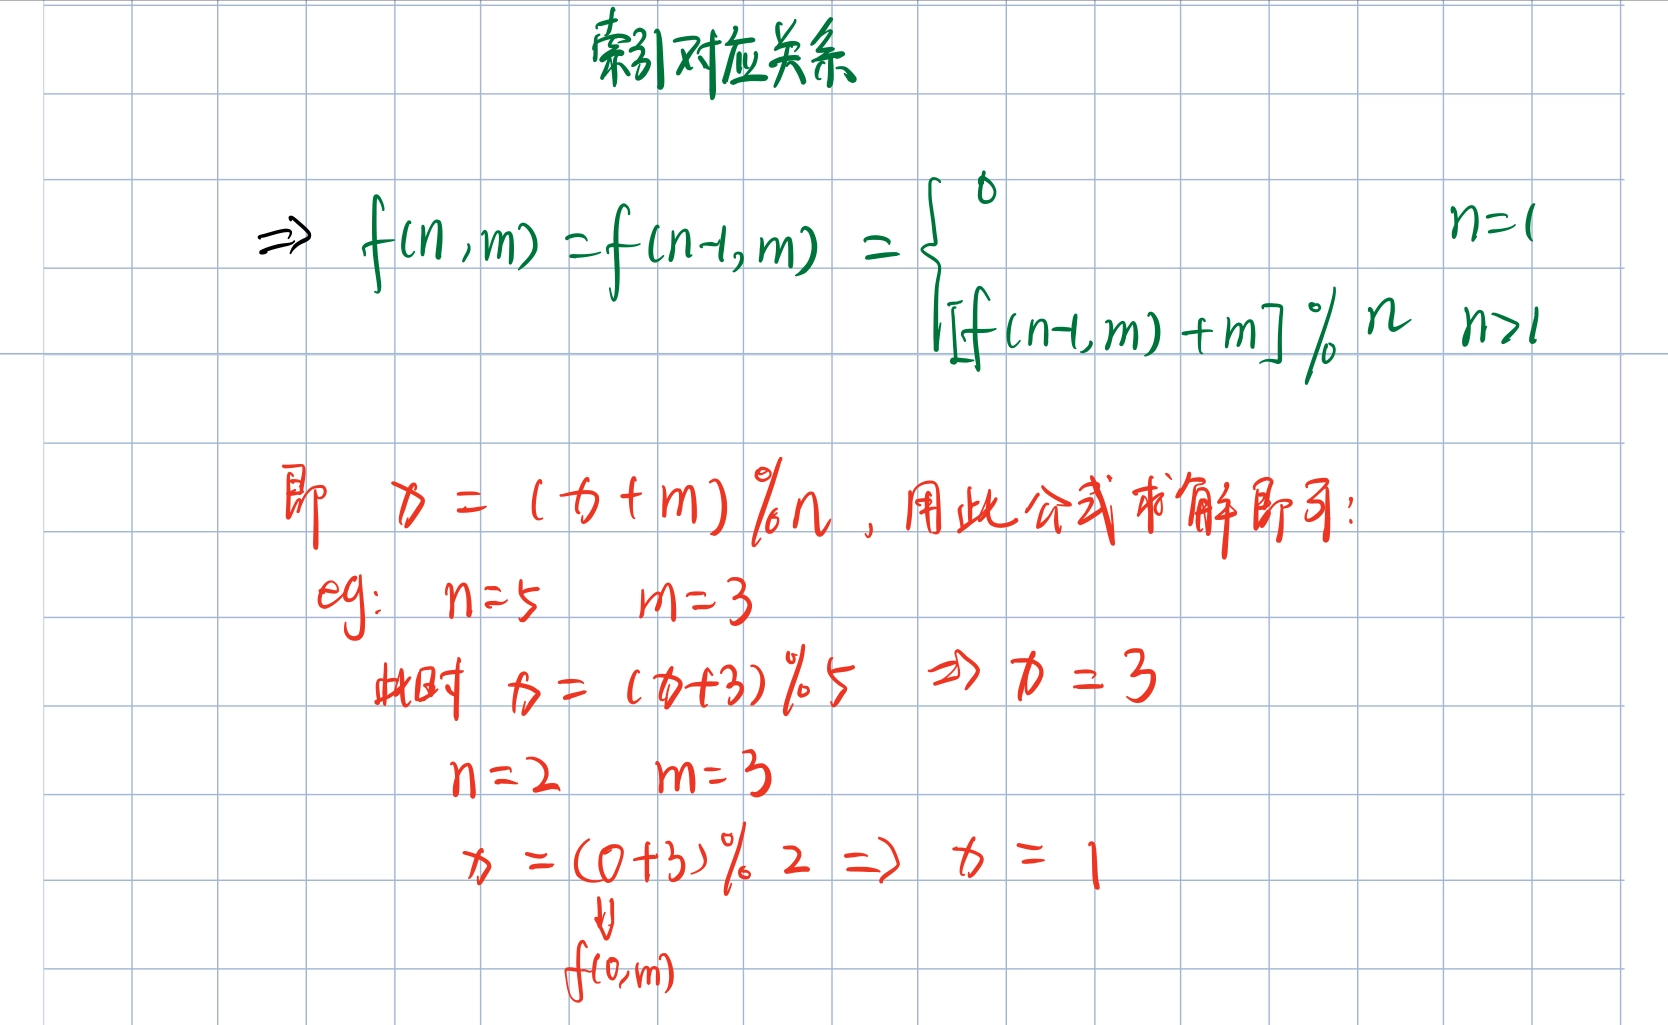 索引对应关系
⇒ f(n,m) = f(n-1,m) = { 0 n=1
[f(n-1,m)+m] % n n>1
即 x = (x+m)%n, 用此公式求解即可:
eg: n=5 m=3
此时 x = (x+3)%5 ⇒ x = 3
n=2 m=3
x = (0+3)%2 ⇒ x = 1
⇓
f(0,m)